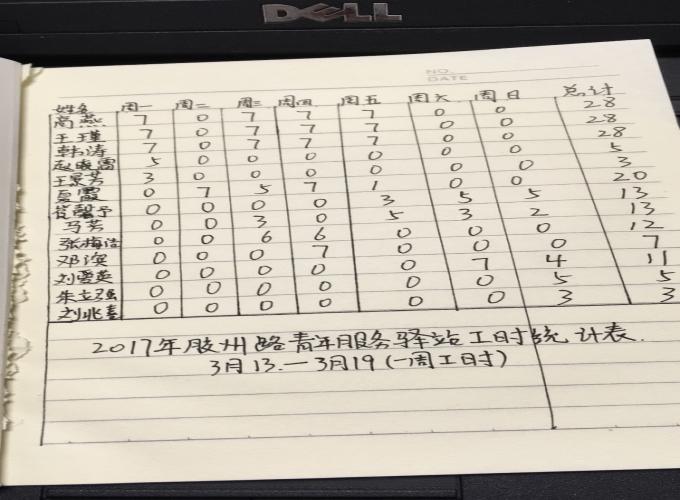 DELL
NO.
DATE
姓名 周一 周二 周三 周四 周五 周六 周日 总计
高燕 7 0 7 7 7 0 0 28
王瑾 7 0 7 7 7 0 0 28
韩涛 7 0 7 7 7 0 0 28
赵晓雷 5 0 0 0 0 0 0 5
王景芳 3 0 0 0 0 0 0 3
夏霞 0 7 5 7 1 0 0 20
管馨予 0 0 0 0 3 5 5 13
马芳 0 0 3 0 5 3 2 13
张梅洁 0 0 6 6 0 0 0 12
邓滨 0 0 0 7 0 0 0 7
刘爱英 0 0 0 0 0 7 4 11
朱立强 0 0 0 0 0 0 5 5
刘兆喜 0 0 0 0 0 0 3 3
2017年胶州路青年服务驿站工时统计表.
3月13.—3月19(一周工日时)